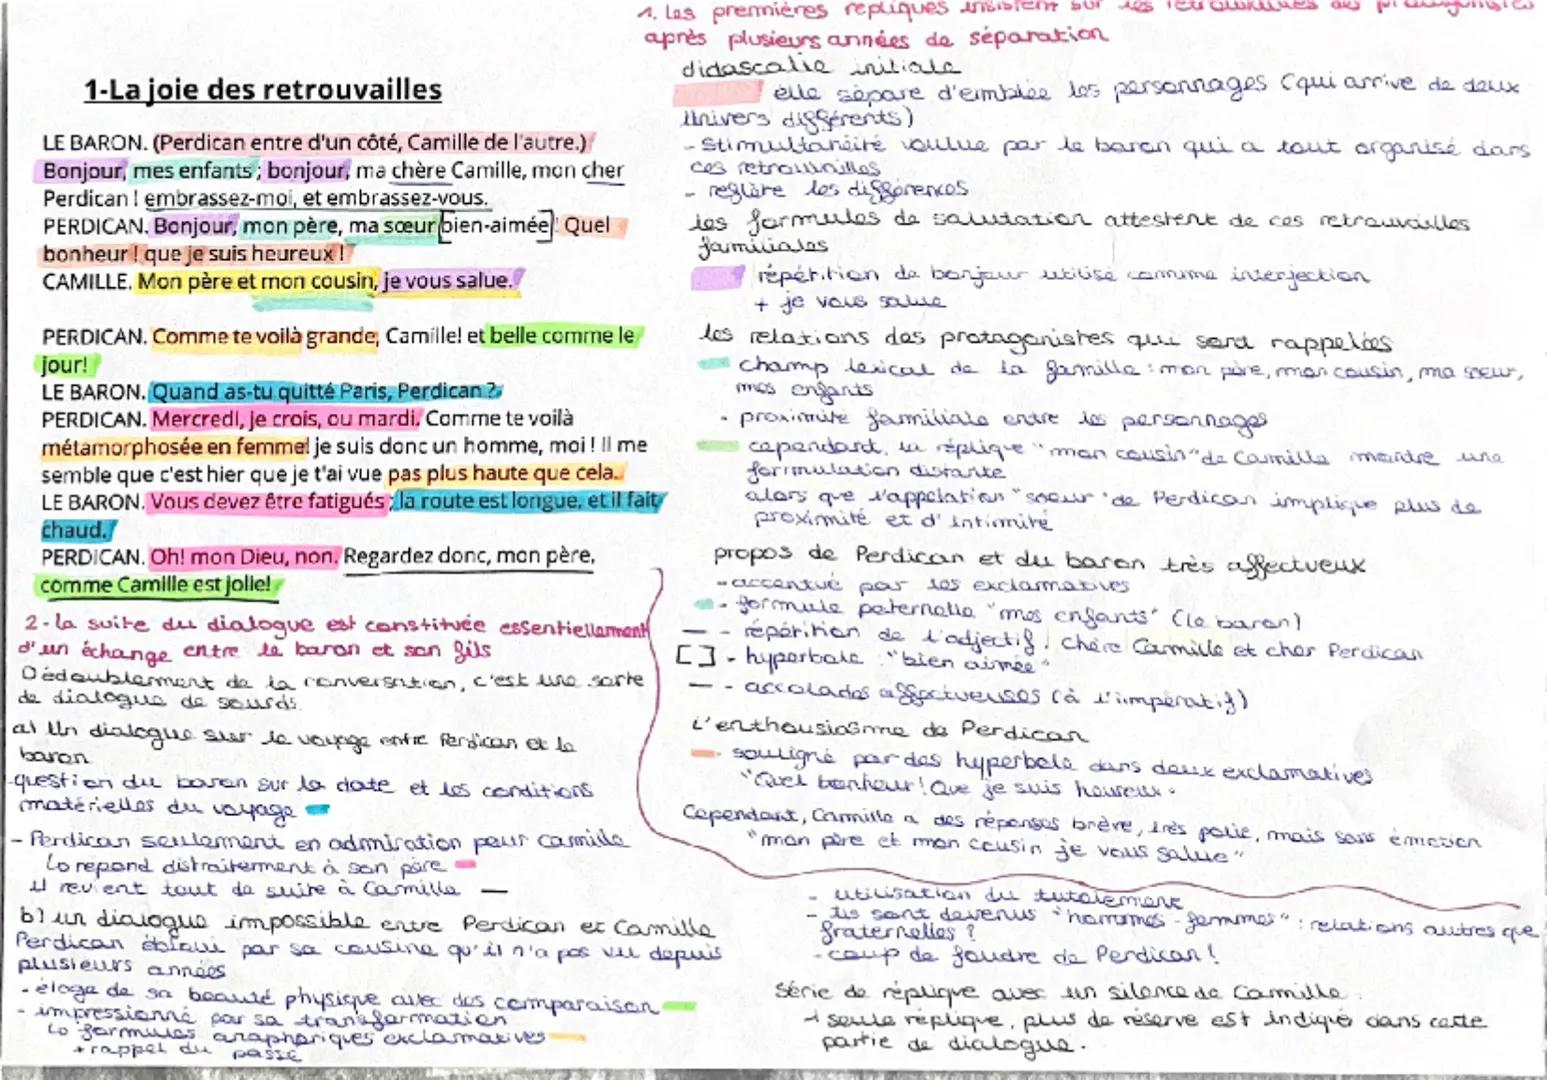 1-La joie des retrouvailles
LE BARON. (Perdican entre d'un côté, Camille de l'autre.)
Bonjour, mes enfants ; bonjour, ma chère Camille, mon cher
Perdican ! embrassez-moi, et embrassez-vous.
PERDICAN. Bonjour, mon père, ma sœur [bien-aimée] ! Quel
bonheur ! que je suis heureux !
CAMILLE. Mon père et mon cousin, je vous salue.
PERDICAN. Comme te voilà grande, Camille! et belle comme le
jour!
LE BARON. Quand as-tu quitté Paris, Perdican ?
PERDICAN. Mercredi, je crois, ou mardi. Comme te voilà
métamorphosée en femme! je suis donc un homme, moi ! Il me
semble que c'est hier que je t'ai vue pas plus haute que cela.
LE BARON. Vous devez être fatigués ; la route est longue, et il fait
chaud.
PERDICAN. Oh! mon Dieu, non. Regardez donc, mon père,
comme Camille est jolie!
2-la suite du dialogue est constituée essentiellement
d'un échange entre le baron et son fils
Dédoublement de la conversation, c'est une sorte
de dialogue de sourds.
a) Un dialogue sur le voyage entre Perdican et le
baron
-question du baron sur la date et les conditions
matérielles du voyage
- Perdican seulement en admiration pour Camille
Lo répond distraitement à son père
il revient tout de suite à Camille
b) un dialogue impossible entre Perdican et Camille
Perdican ébloui par sa cousine qu'il n'a pas vu depuis
plusieurs années
- éloge de sa beauté physique avec des comparaison
- impressionné par sa transformation
Lo formules anaphoriques exclamatives
+ rappel du passé
1. Les premières répliques insistent sur les retrouvailles des protagonistes
après plusieurs années de séparation
didascalie initiale
elle sépare d'emblée les personnages (qui arrive de deux
univers différents)
- Stimultanéité voulue par le baron qui a tout organisé dans
ces retrouvailles
- reflète les différences
les formules de salutation attestent de ces retrouvailles
familiales
répétition de bonjour utilisé comme interjection
+ je vous salue
les relations des protagonistes qui sont rappelées
champ lexical de la famille : mon père, mon cousin, ma sœur,
mes enfants
- proximité familiale entre les personnages
cependant, la réplique "mon cousin" de Camille montre une
formulation distante
alors que l'appelation "soeur" de Perdican implique plus de
proximité et d'intimité
propos de Perdican et du baron très affectueux
- accentué par les exclamatives
- formule paternelle "mes enfants" (le baron)
- répétition de l'adjectif : chère Camille et cher Perdican
[ ] - hyperbole : "bien aimée"
- accolades affectueuses (à l'impératif)
L'enthousiasme de Perdican
- souligné par des hyperbole dans deux exclamatives
"Quel bonheur ! Que je suis heureux"
Cependant, Camille a des réponses brève, très polie, mais sans émotion
"mon père et mon cousin je vous salue"
- utilisation du tutoiement
- ils sont devenus "hommes-femmes" : relations autres que
fraternelles ?
- coup de foudre de Perdican !
Série de réplique avec un silence de Camille
1 seule réplique, plus de réserve est indiqué dans cette
partie de dialogue.